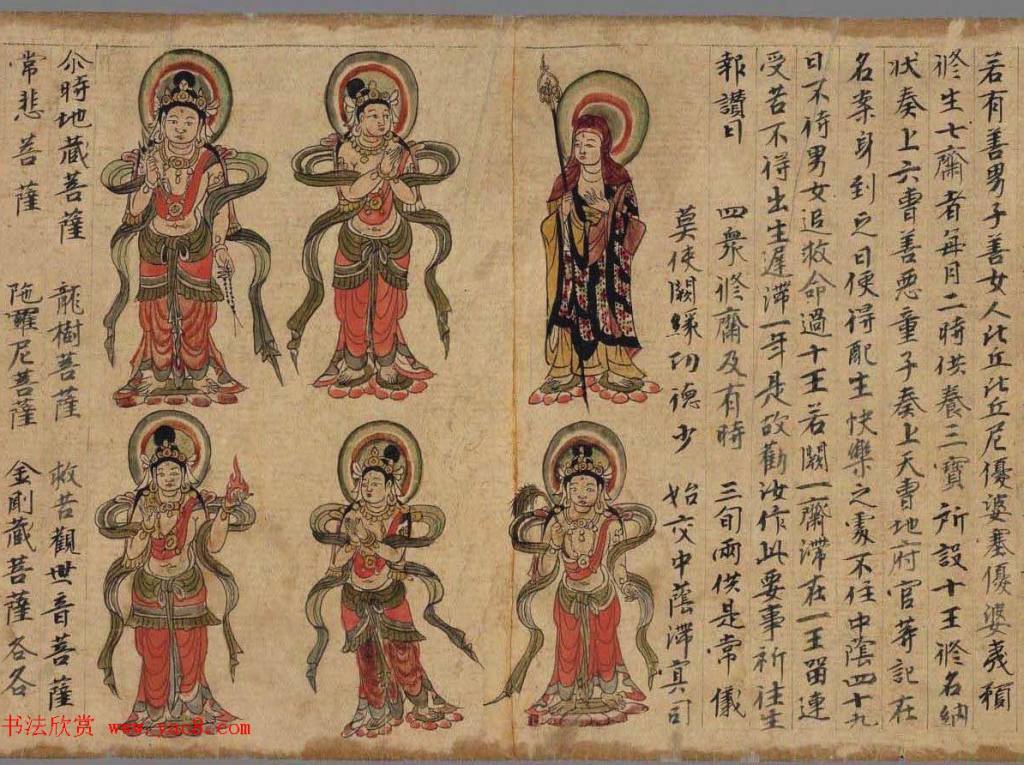 若有善男子善女人比丘比丘尼優婆塞優婆夷預
修生七齋者每月二時供養三寶所設十王修名納
狀奏上六曹善惡童子奏上天曹地府官等記在
名案身到之日便得配生快樂之處不住中蔭四十九
日不待男女追救命過十王若闕一齋滯在一王留連
受苦不得出生遲滯一年是故勸汝作此要事祈往生
報讚曰 四衆修齋及有時 三旬兩供是常儀
莫使闕緣功德少 始交中蔭滯冥司
尒時地藏菩薩 龍樹菩薩 救苦觀世音菩薩
常悲菩薩 陁羅尼菩薩 金剛藏菩薩各各
书法欣赏 www.yac8.com